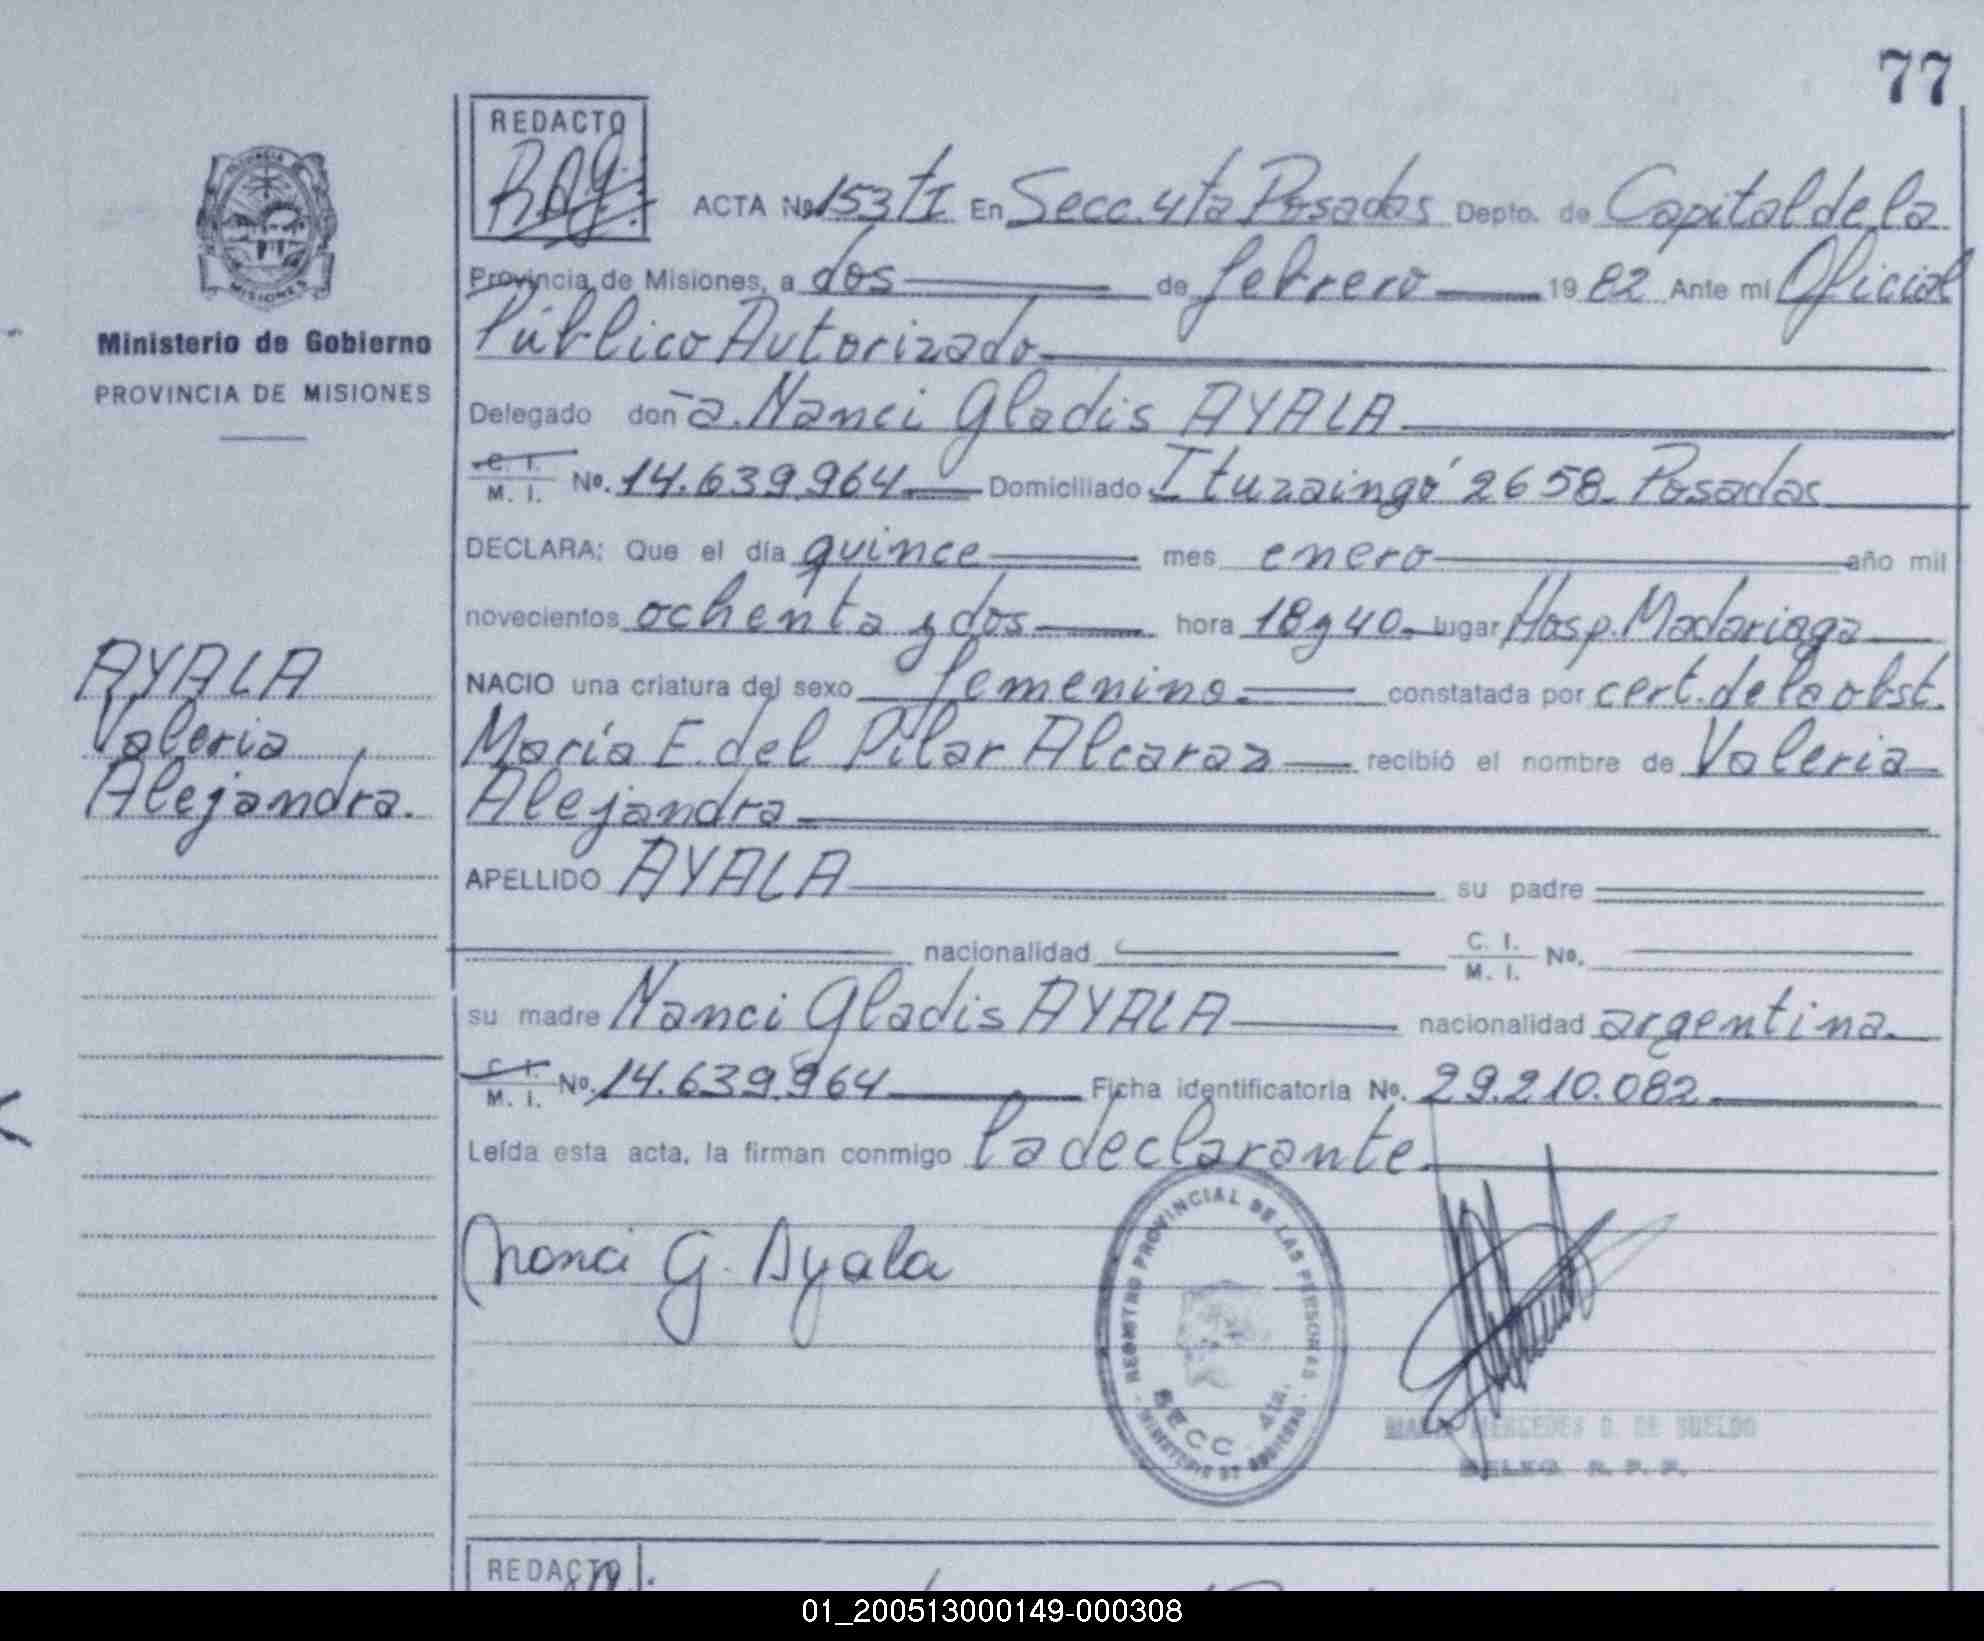 77
REDACTO
ACTA No. 153 tI En Secc. 4ta Posadas Depto. de Capital de la
Provincia de Misiones, a dos de febrero 1982 Ante mi Oficial
Público Autorizado
Delegado doña. Nanci Gladis AYALA
C. I.
M. I. No. 14.639.964 Domiciliado Ituzaingó 2658. Posadas
DECLARA: Que el día quince mes enero año mil
novecientos ochenta y dos hora 18 y 40 lugar Hosp. Madariaga
NACIO una criatura del sexo femenino constatada por cert. de la obst.
María E. del Pilar Alcaraz recibió el nombre de Valeria
Alejandra
APELLIDO AYALA su padre
nacionalidad C. I.
M. I. No.
su madre Nanci Gladis AYALA nacionalidad argentina.
C. I.
M. I. No. 14.639.964 Ficha identificatoria No. 29.210.082
Leída esta acta, la firman conmigo la declarante
Nanci G. Ayala
REGISTRO PROVINCIAL DE LAS PERSONAS
SECC. 4ta.
MINISTERIO DE GOBIERNO
MERCEDES D. DE SUELDO
R. P. P.
MISIONES
Ministerio de Gobierno
PROVINCIA DE MISIONES
AYALA
Valeria
Alejandra.
REDACTO
01_200513000149-000308